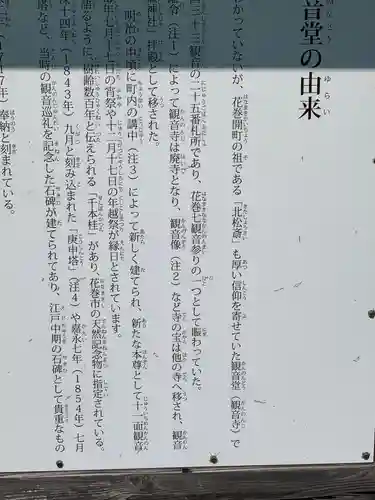 音堂の由来
かっていないが、花巻開町の祖である「北松斎」も厚い信仰を寄せていた観音堂（観音寺）で
三十三観音の二十五番札所であり、花巻七観音参りの一つとして賑わっていた。
令（注１）によって観音寺は廃寺となり、観音像（注２）など寺の宝は他の寺へ移され、観音
神社」拝殿として移された。
明治の中頃に町内の講中（注３）によって新しく建てられ、新たな本尊として十一面観音
年七月十七日の宵祭や十二月十七日の年越祭が縁日とされています。
るように、樹齢数百年と伝えられる「千本桂」があり、花巻市の天然記念物に指定されている。
十四年（１８４３年）九月と刻み込まれた「庚申塔」（注４）や嘉永七年（１８５４年）七月
塔など、当時の観音巡礼を記念した石碑が建てられてあり、江戸中期の石碑として貴重なもの
７年）奉納と刻まれている。